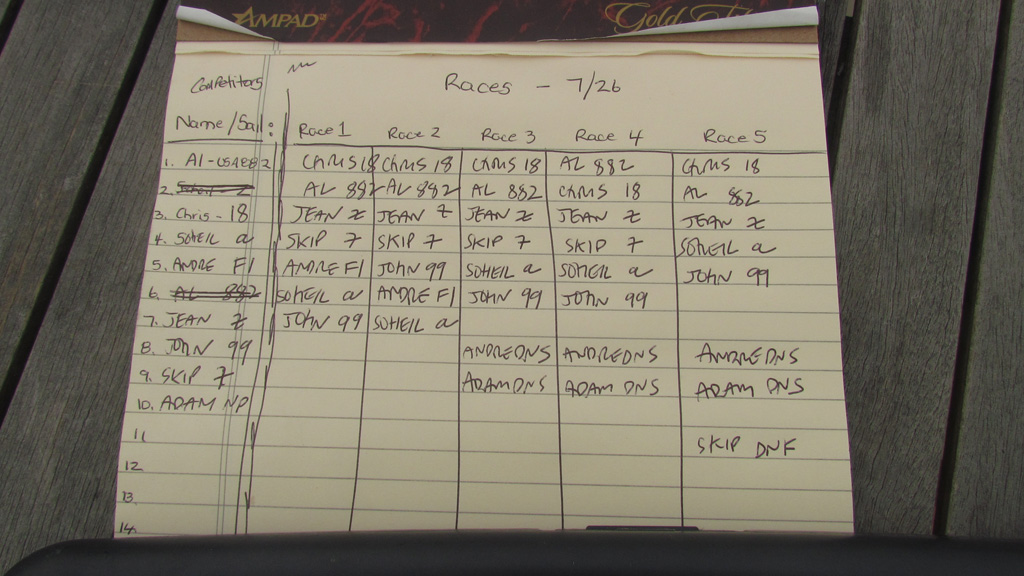 AMPAD
Gold Fi
Competitors Races - 7/26
Name/Sail: Race 1 Race 2 Race 3 Race 4 Race 5
1. Al - USA882 CHRIS 18 CHRIS 18 CHRIS 18 AL 882 CHRIS 18
2. AL 882 AL 882 AL 882 CHRIS 18 AL 882
3. Chris - 18 JEAN Z JEAN Z JEAN Z JEAN Z JEAN Z
4. SOHEIL a SKIP 7 SKIP 7 SKIP 7 SKIP 7 SOHEIL a
5. ANDRE F1 ANDRE F1 JOHN 99 SOHEIL a SOHEIL a JOHN 99
6. AL 882 SOHEIL a ANDRE F1 JOHN 99 JOHN 99
7. JEAN Z JOHN 99 SOHEIL a
8. JOHN 99 ANDRE DNS ANDRE DNS ANDRE DNS
9. SKIP 7 ADAM DNS ADAM DNS ADAM DNS
10. ADAM NP
11 SKIP DNF
12
13.
14.